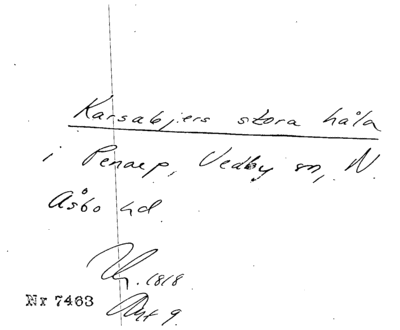 Karsabjers stora håla
i Penarp, Vedby sn, N.
Åsbo hd.
1818
Nr 7463
Akt 9.